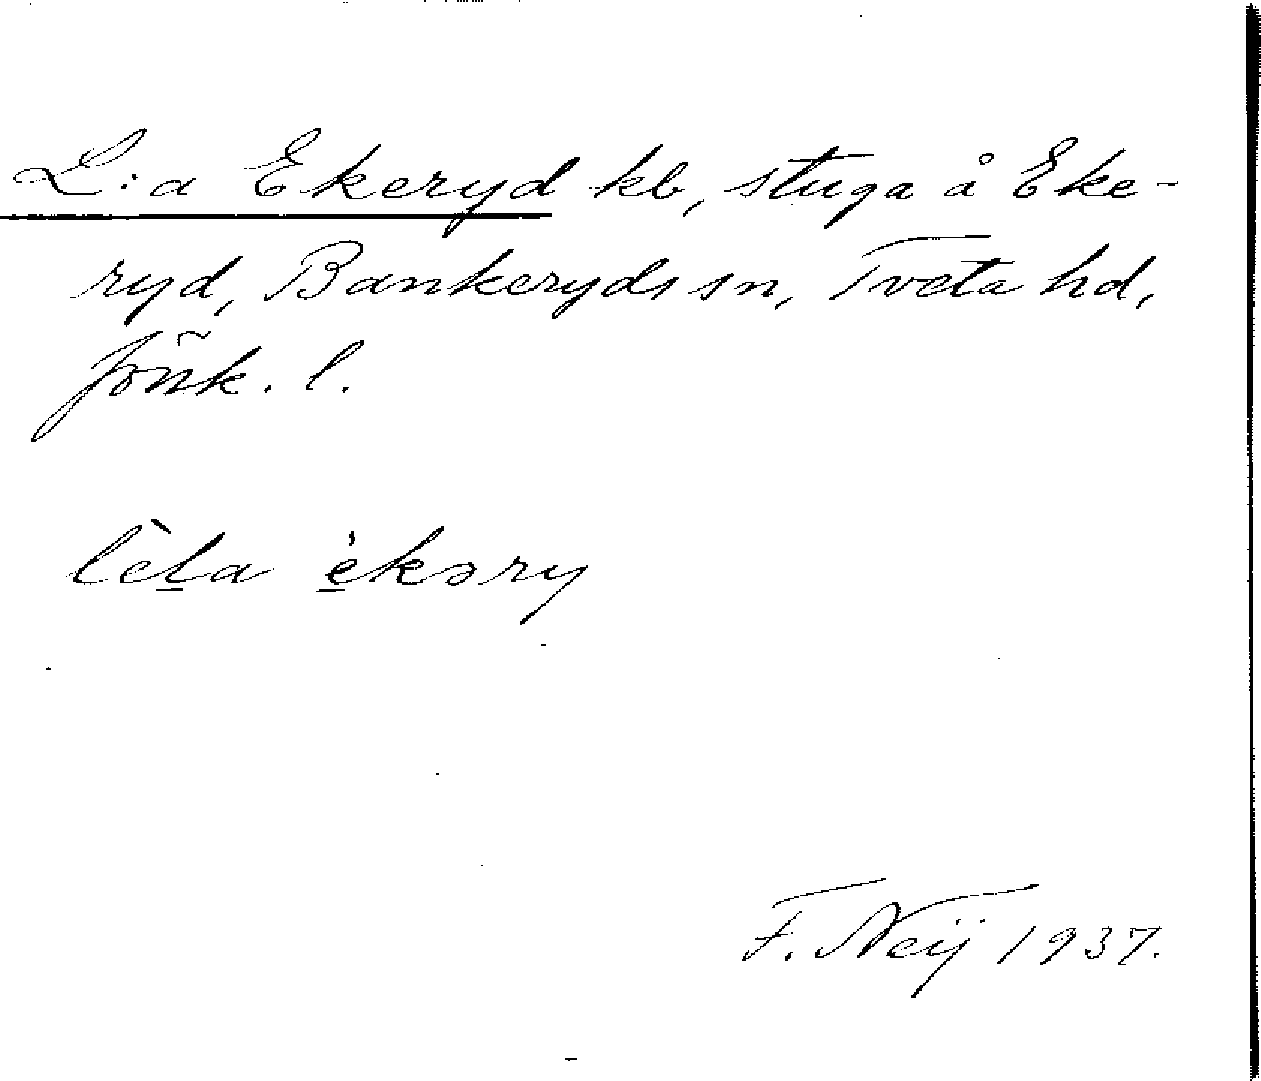 L:a Ekeryd kb, stuga å Eke-
ryd, Bankeryds sn, Tveta hd,
Jönk. l.
lèla èkəry
F. Neij 1937.